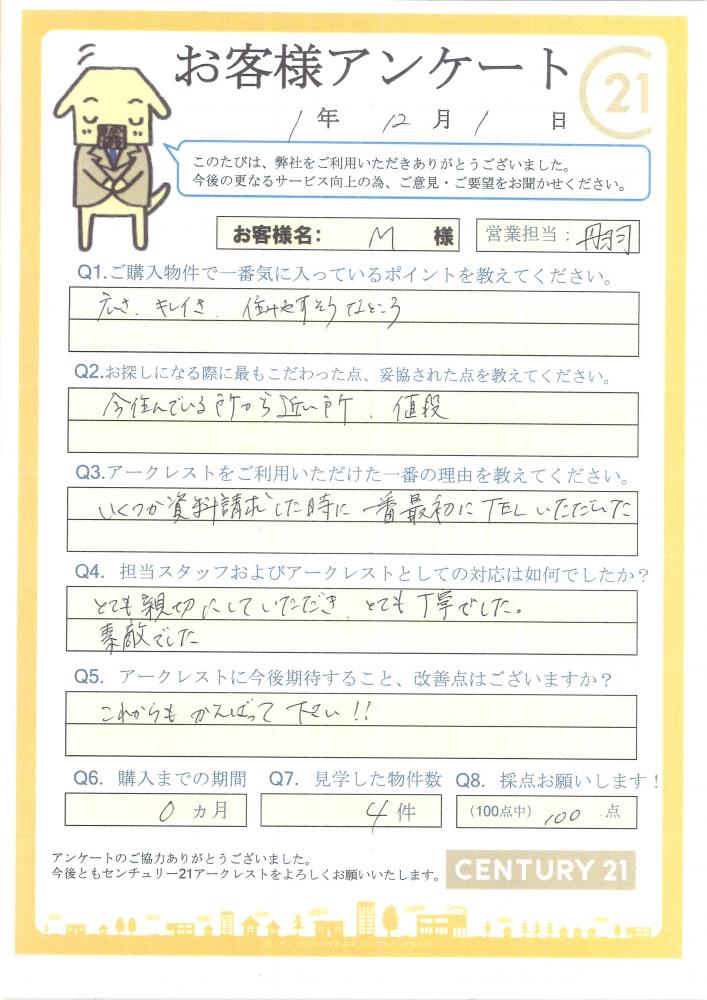 お客様アンケート
21
1年 12月1 日
このたびは、弊社をご利用いただきありがとうございました。
今後の更なるサービス向上の為、ご意見・ご要望をお聞かせください。
お客様名: M 様
営業担当: 丹羽
Q1.ご購入物件で一番気に入っているポイントを教えてください。
広さ、キレイさ、住みやすそうなところ
Q2.お探しになる際に最もこだわった点、妥協された点を教えてください。
今住んでいる所から近い所、値段
Q3.アークレストをご利用いただけた一番の理由を教えてください。
いくつか資料請求した時に一番最初にTELいただいた
Q4. 担当スタッフおよびアークレストとしての対応は如何でしたか?
とても親切にしていただき、とても丁寧でした。
素敵でした
Q5. アークレストに今後期待すること、改善点はございますか?
これからもがんばって下さい!!
Q6. 購入までの期間 Q7. 見学した物件数 Q8. 採点お願いします!
0 カ月 4件 (100点中) 100 点
アンケートのご協力ありがとうございました。
今後ともセンチュリー21アークレストをよろしくお願いいたします。
CENTURY 21